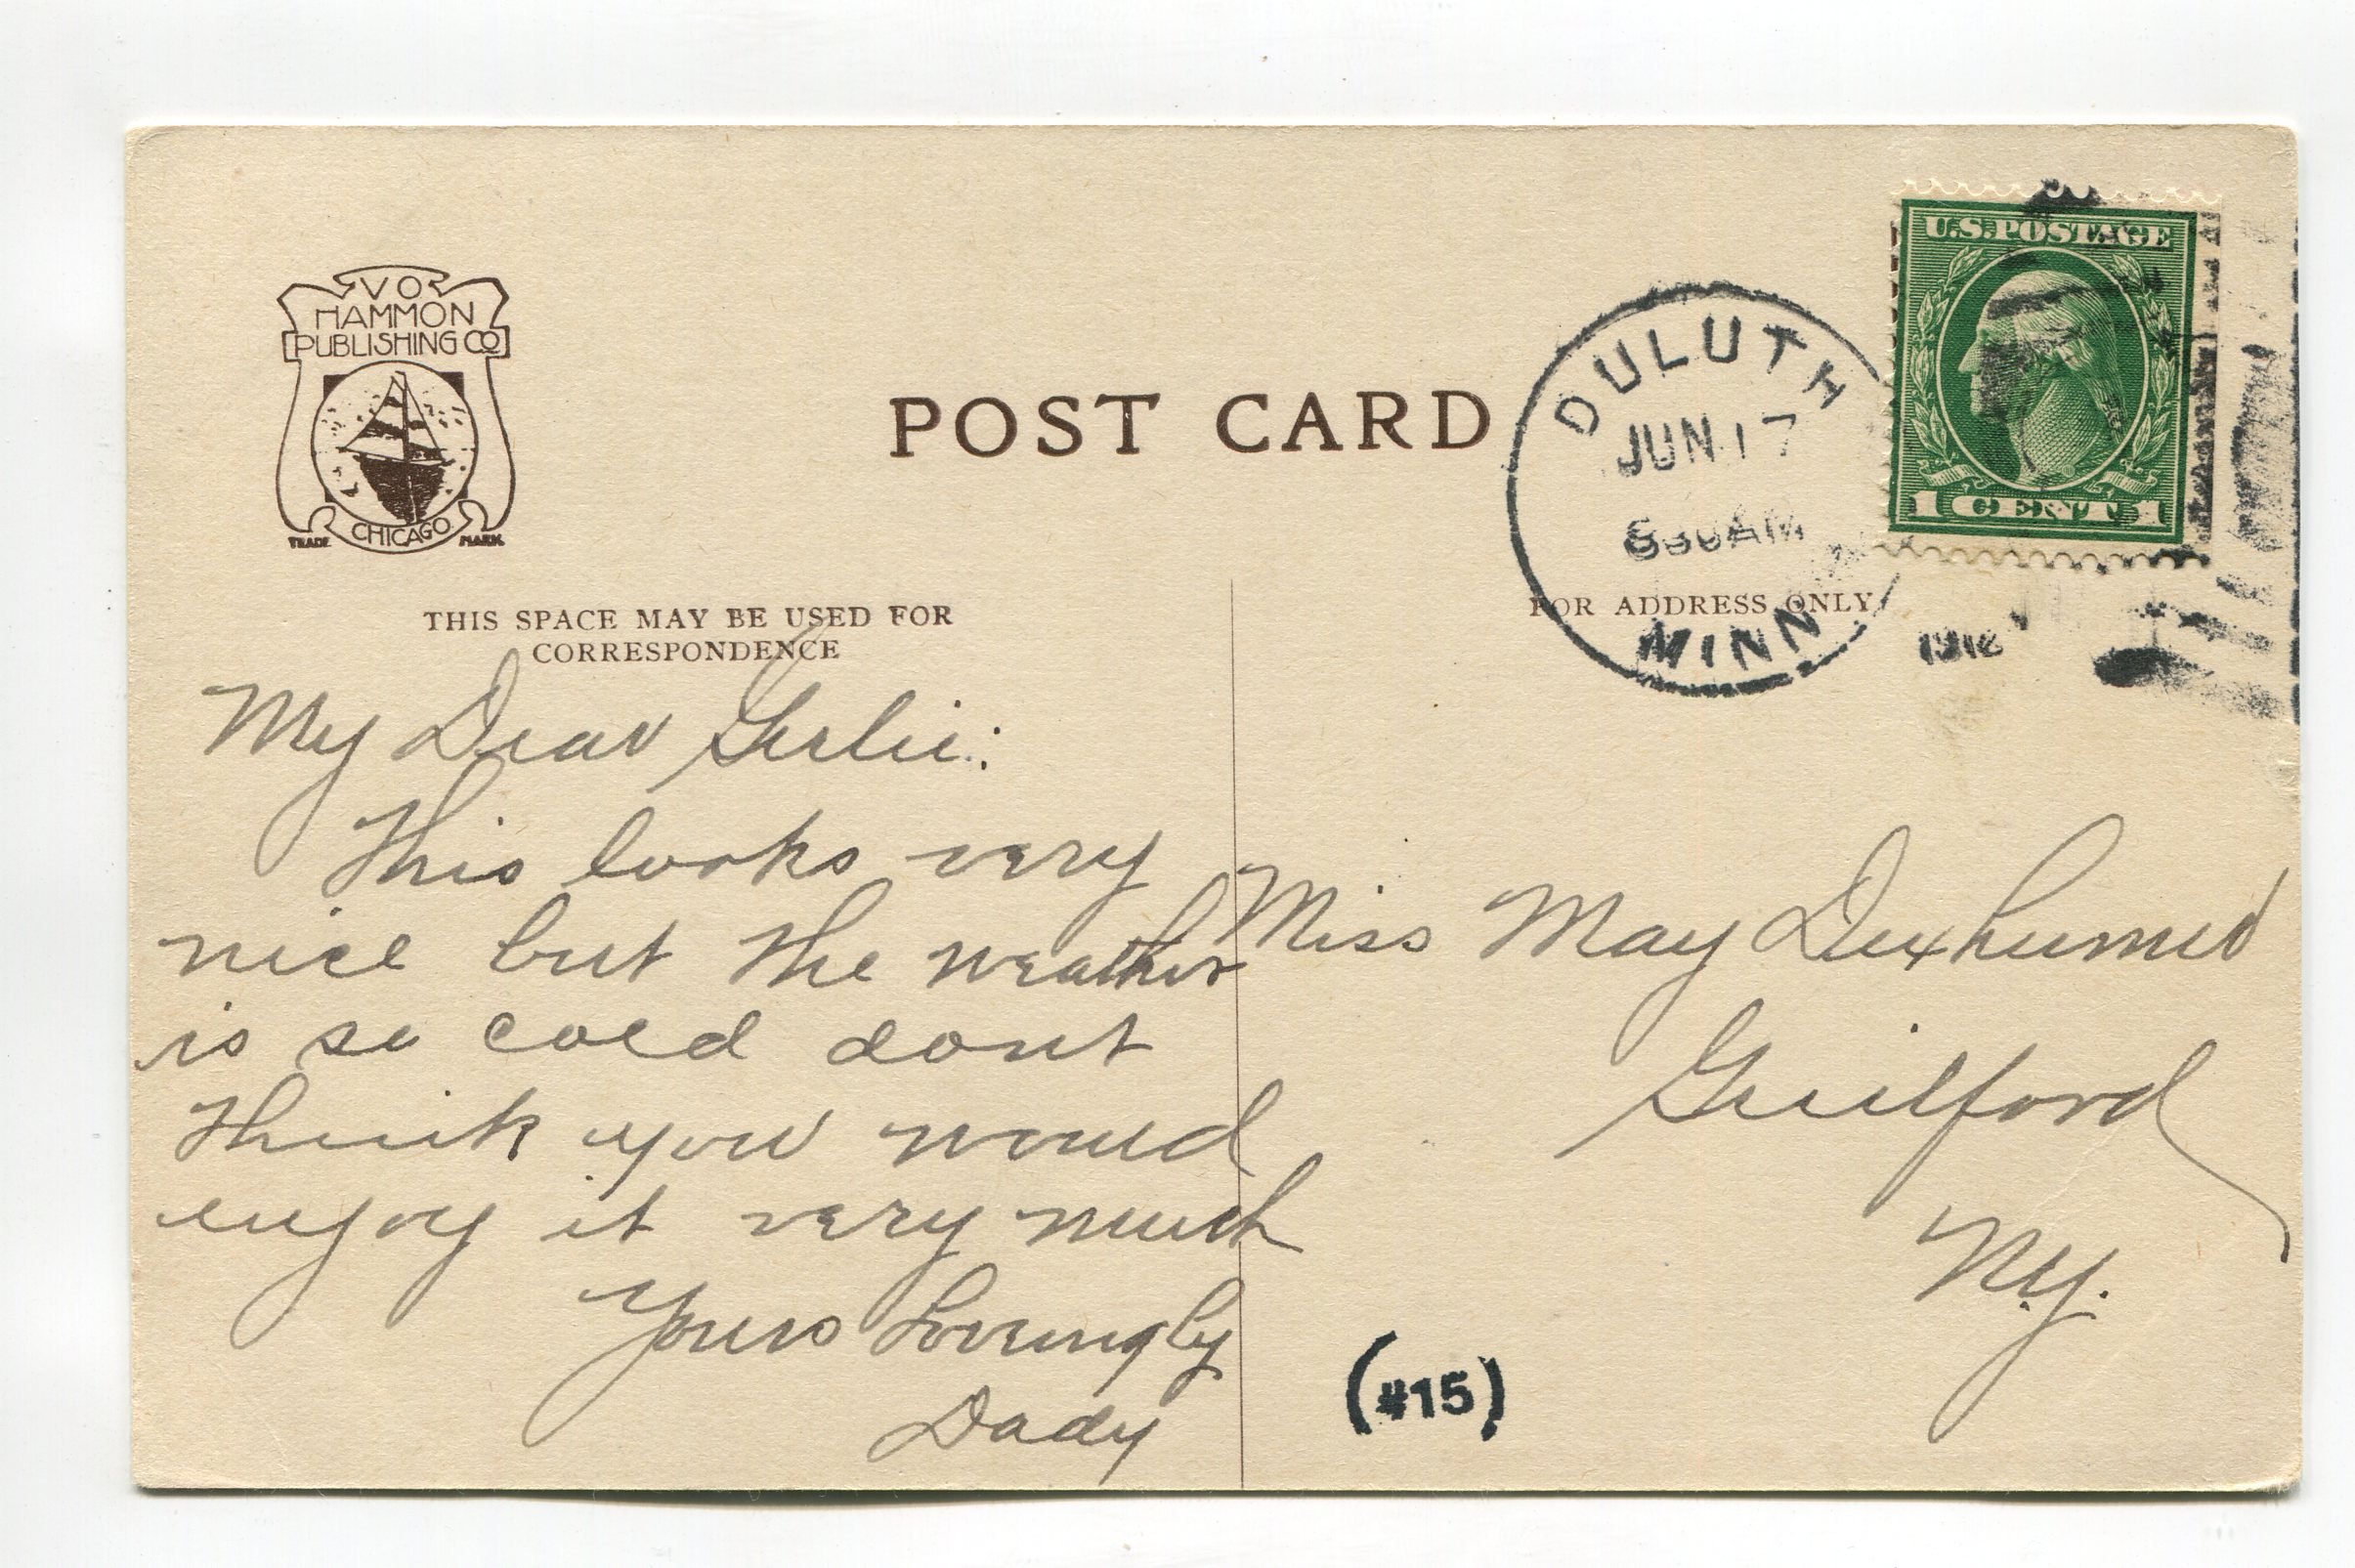 V O
HAMMON
PUBLISHING CO
CHICAGO
TRADE MARK
POST CARD
U.S. POSTAGE
1 CENT 1
DULUTH
JUN 17
830 AM
MINN
191
THIS SPACE MAY BE USED FOR
CORRESPONDENCE
FOR ADDRESS ONLY
My Dear Girlie:
This looks very
nice but the weather
is so cold dont
think you would
enjoy it very much
Yours Lovingly
Dady
Miss May
Guilford
N.Y.
(#15)